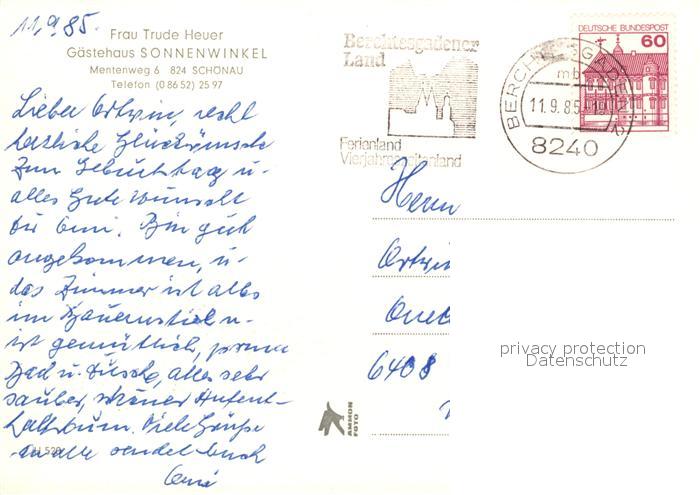 11.9.85.
Frau Trude Heuer
Gästehaus SONNENWINKEL
Mentenweg 6 824 SCHÖNAU
Telefon (0 86 52) 25 97
Lieber Ortwin, recht
herzliche Glückwünsche
zum Geburtstag u.
alles Gute wünscht
dir Omi. Bin gut
angekommen, u.
das Zimmer ist alles
im Bauernstiel u.
ist gemütlich, prima
Bad u. Dusche, alles sehr
sauber, schöner Aufent-
haltsraum. Viele Grüße
an alle sendet Euch
Omi
Berchtesgadener
Land
Ferienland
Vierjahreszeitenland
DEUTSCHE BUNDESPOST
60
BERCHTESGADEN 2
mb
11.9.85
8240
Herrn
Ortwin
6408
privacy protection
Datenschutz
AMMON
FOTO